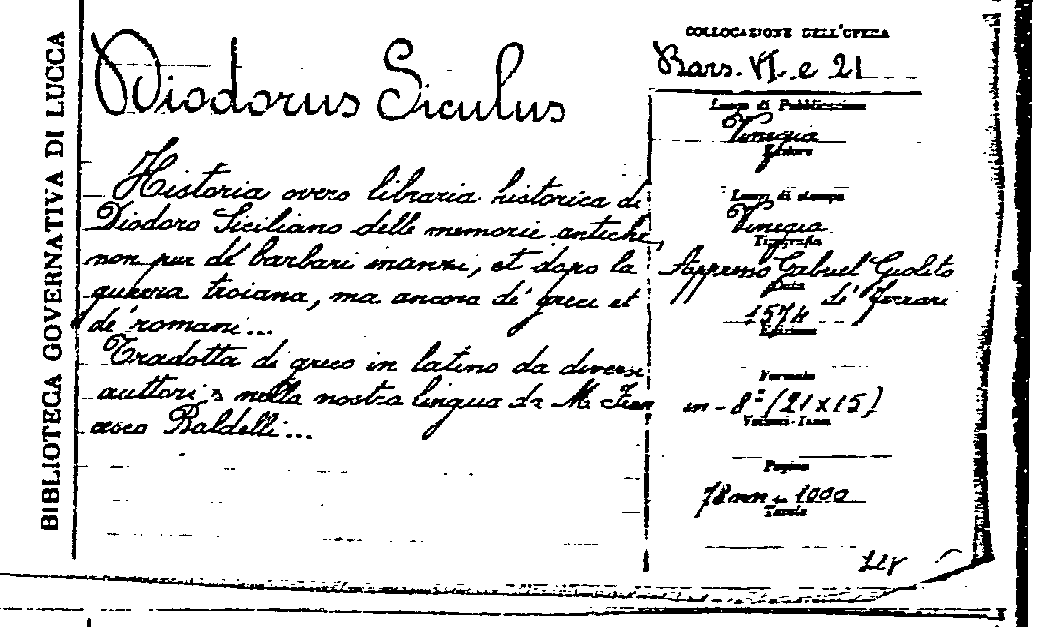 BIBLIOTECA GOVERNATIVA DI LUCCA
Diodorus Siculus
Historia overo libraria historica di
Diodoro Siciliano delle memorie antiche,
non pur de' barbari inanzi, et dopo la
guerra troiana, ma ancora de' greci et
de' romani...
Tradotta di greco in latino da diversi
auttori, e nella nostra lingua da M. Fran
cesco Baldelli...
COLLOCAZIONE DELL'OPERA
Bars. VI. e 21
Luogo di Pubblicazione
Vinegia
Editore
Luogo di stampa
Vinegia
Tipografia
Appresso Gabriel Giolito
Data
de' Ferrari
1574
Edizione
Formato
in-8º (21x15)
Volumi-Tomi
Pagine
78nn + 1000
Tavole